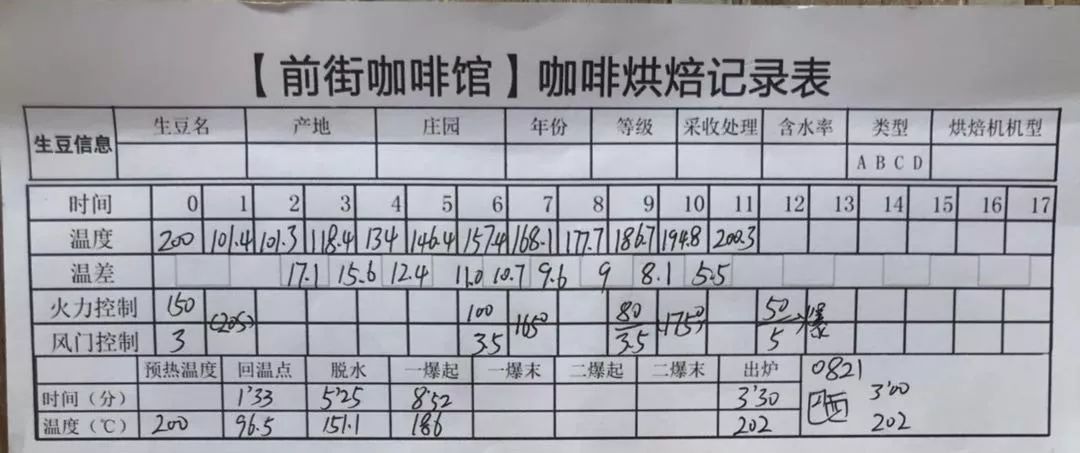 【前街咖啡馆】咖啡烘焙记录表
生豆信息 生豆名 产地 庄园 年份 等级 采收处理 含水率 类型 烘焙机机型
A B C D
时间 0 1 2 3 4 5 6 7 8 9 10 11 12 13 14 15 16 17
温度 200 101.4 101.3 118.4 134 146.4 157.4 168.1 177.7 186.7 194.8 200.3
温差 17.1 15.6 12.4 11.0 10.7 9.6 9 8.1 5.5
火力控制 150 100 80 50
(205) 165° 175° 爆
风门控制 3 3.5 3.5 5
预热温度 回温点 脱水 一爆起 一爆末 二爆起 二爆末 出炉 0821
时间（分） 1'33 5'25 8'52 3'30 3'00
温度（℃） 200 96.5 151.1 186 202 202